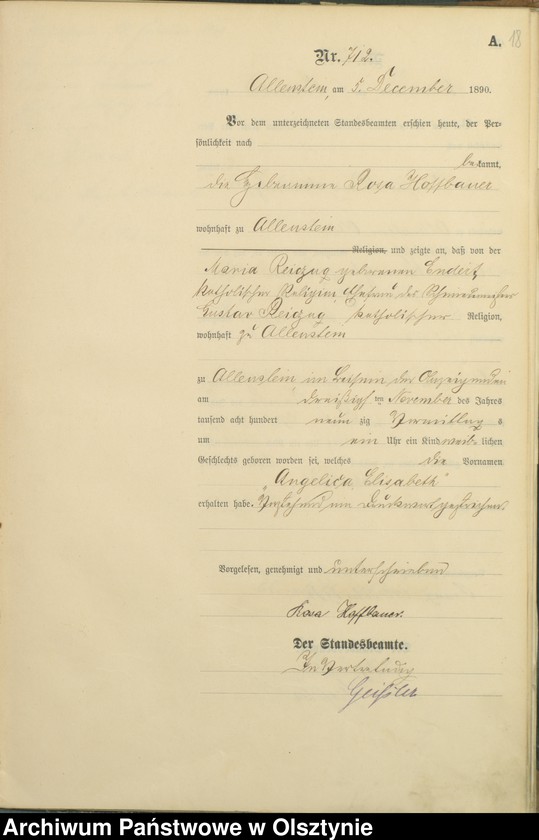 A. 18
Nr. 712.
Allenstein, am 5. December 1890.
Vor dem unterzeichneten Standesbeamten erschien heute, der Per-
sönlichkeit nach
bekannt,
die Hebamme Rosa Hoffbauer
wohnhaft zu Allenstein
Religion, und zeigte an, daß von der
Maria Reiczug geborenen Endert
katholischer Religion, Ehefrau des
Gustav Reiczug katholischer Religion,
wohnhaft zu Allenstein
zu Allenstein, im Beisein der Anzeigenden
am dreißigsten November des Jahres
tausend acht hundert neun zig Vormittags
um ein Uhr ein Kind weiblichen
Geschlechts geboren worden sei, welches die Vornamen
"Angelica Elisabeth"
erhalten habe. Vorstehend ein Druckwort gestrichen.
Vorgelesen, genehmigt und unterschrieben
Rosa Hoffbauer.
Der Standesbeamte.
In Vertretung
Geißler
Archiwum Państwowe w Olsztynie